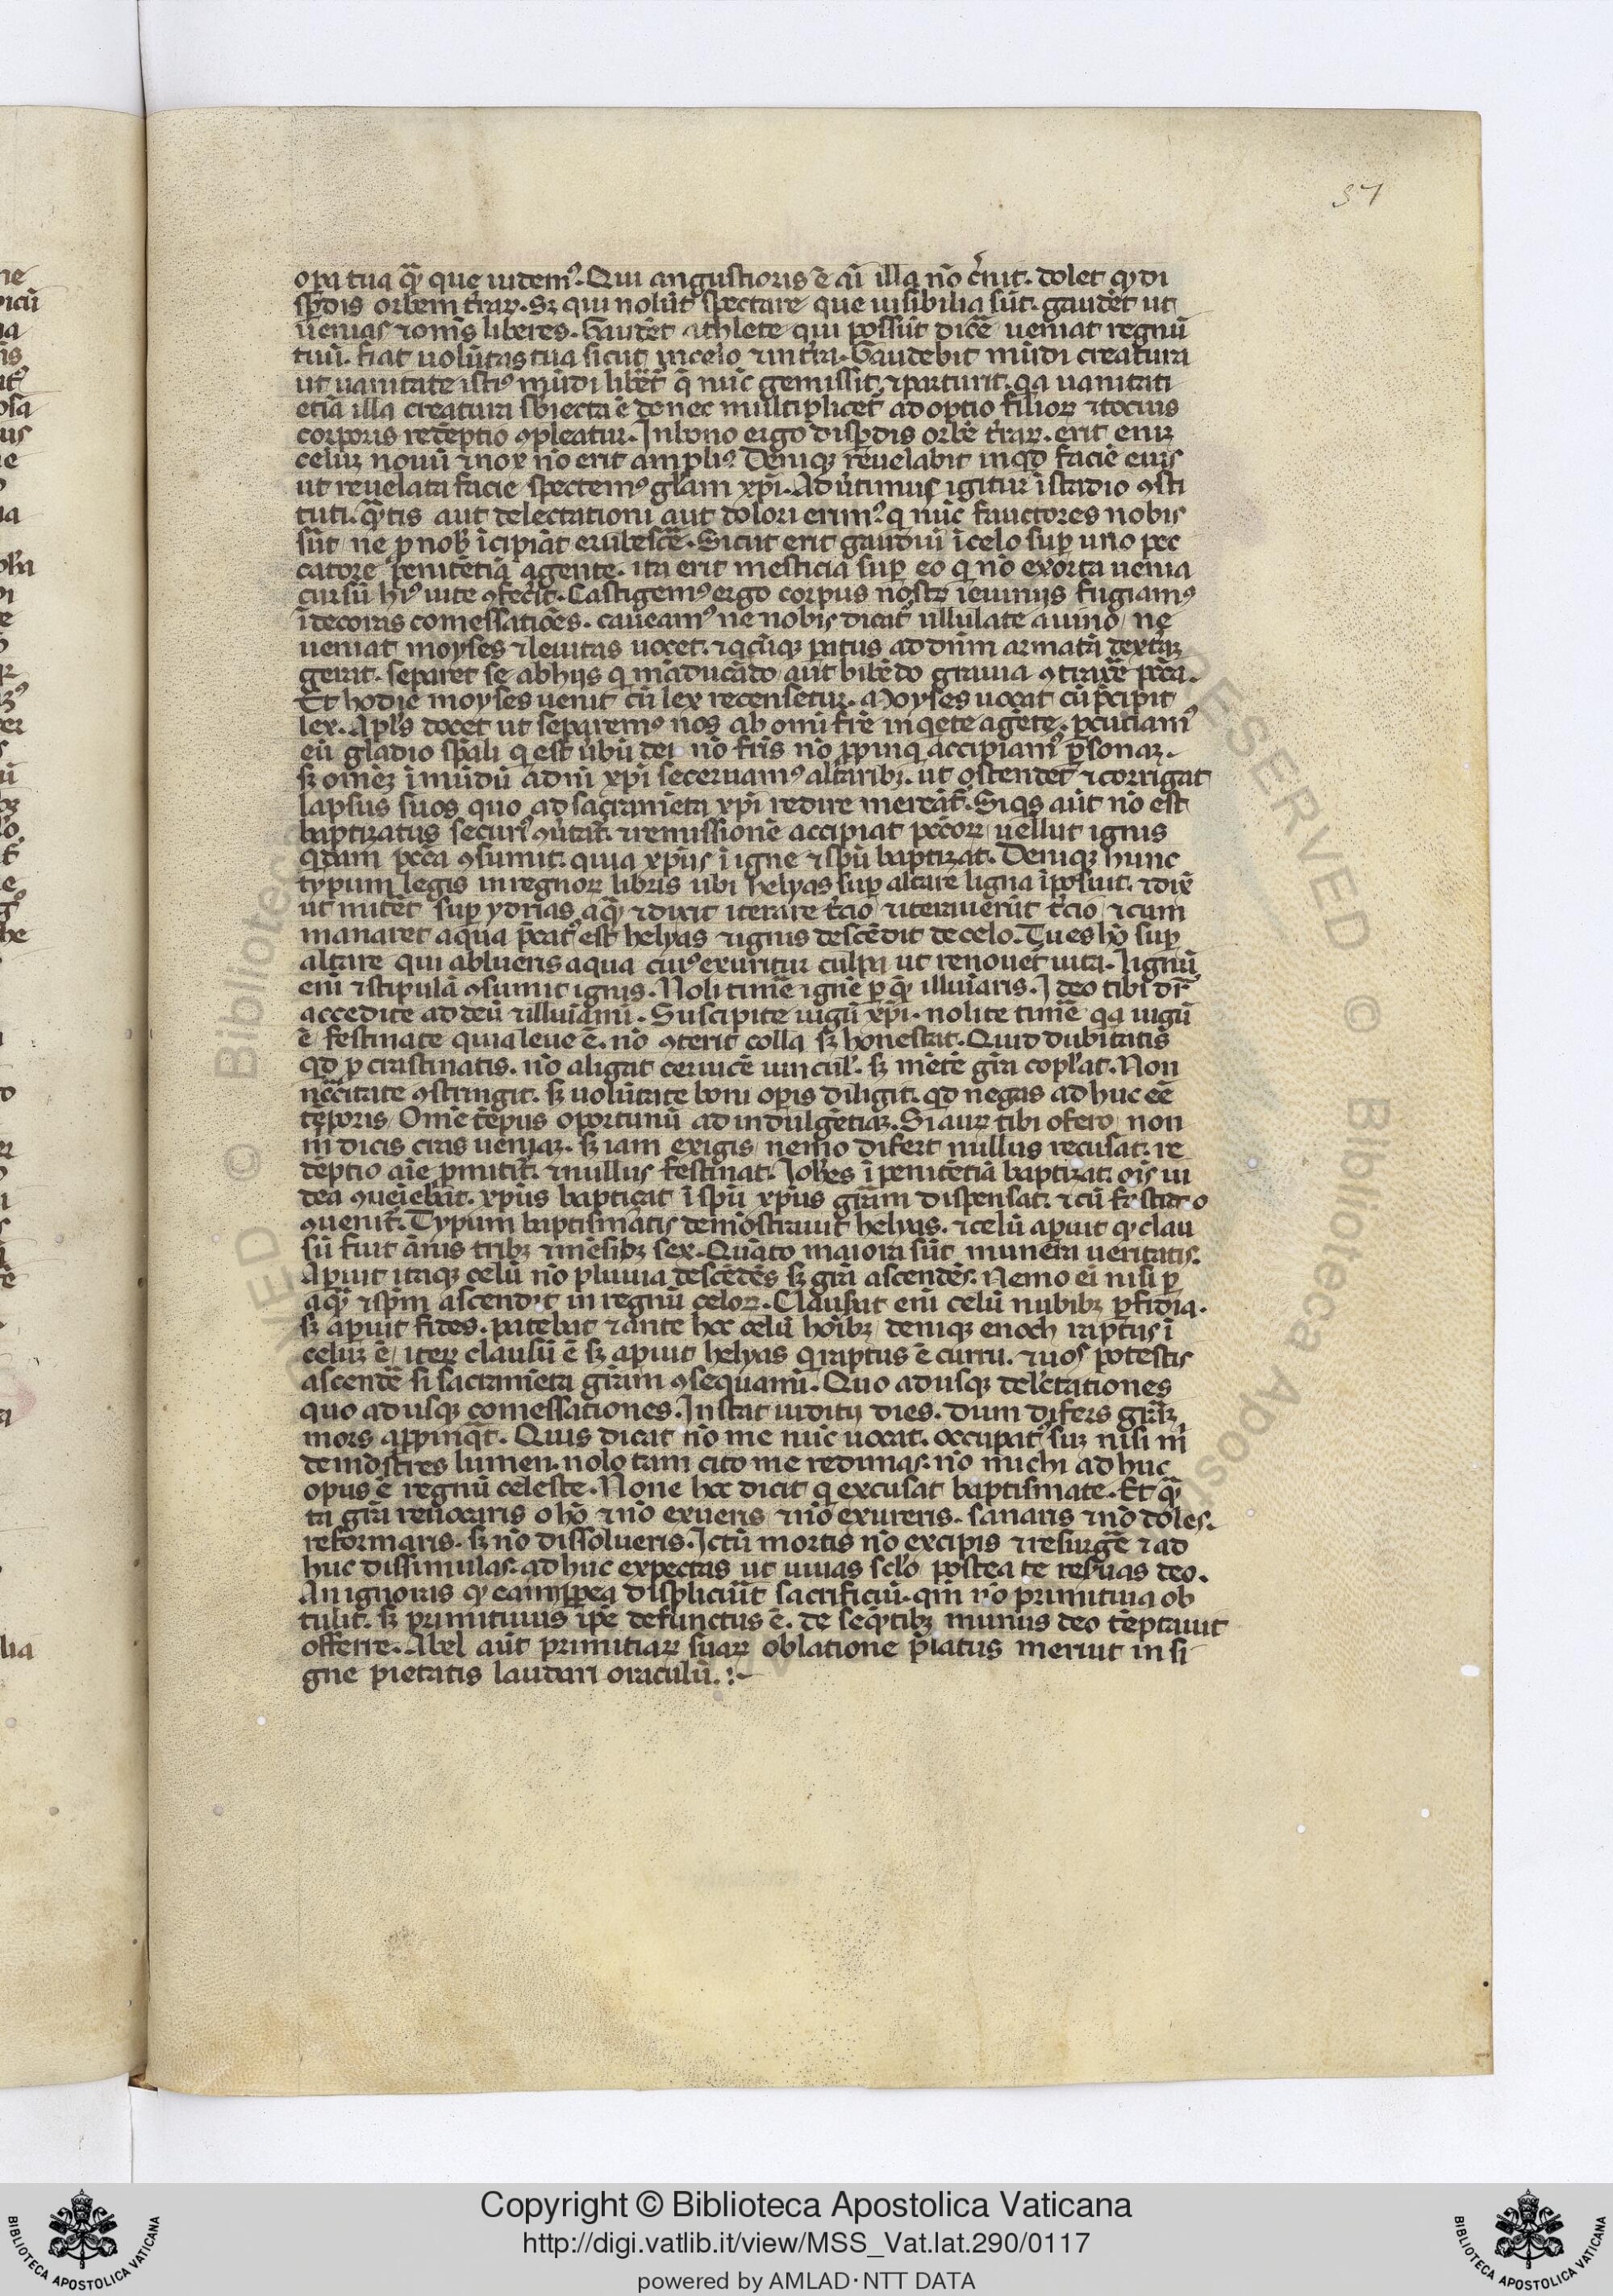 57
opa tua qͣ que uidemꝰ. Qui angustioris ē aī illa nō c̄nit. dolet qꝫ di
sp̄dis orbem t̄raꝝ. Sꝫ qui nolūt spectare que uisibilia sūt. gaudēt ut
uenias ⁊ om̄s liberes. Gaudēt athlete qui possūt dic̄e ueniat regnū
tuū. fiat uolūtas tua sicut in celo ⁊ in t̄ra. Gaudebit mūdi creatura
ut uanitate istiꝰ mūdi libēt q̄ nūc gemissit. ⁊ parturit. qa uanitati
etiā illa creatura sbiecta ē donec multiplicet᷑ adoptio filioꝝ ⁊ tocius
corporis redēptio ꝯpleatur. In bono ergo disp̄dis orbē t̄raꝝ. erit eniꝫ
celuꝫ nouū ⁊ nox nō erit ampliꝰ. Deniqꝫ reuelabit inqd̄ faciē eius
ut reuelata facie spectemꝰ gl̄am xp̄i. Aduertimus igitur ī stadio ꝯsti
tuti. qͣtis aut delectationi aut dolori erimꝰ. q nūc fauctores nobis
sūt ne p nob̄ īcipiāt erubesc̄e. Sicut erit gaudiū ī celo suꝑ uno pec
catore penitētiā agente. ita erit mesticia suꝑ eo q nō exorta uenia
cursū hiꝰ uite ꝯfec̄it. Castigemꝰ ergo corpus nostꝝ ieiuniis fugiamꝰ
īdecoras comessatiōes. caueamꝰ ne nobis dicat᷑ ullulate a uino, ne
ueniat moyses ⁊ leuitas uocet. ⁊ qcūqꝫ patus ad dnm armatā dextaꝫ
gerit. separet se ab hiis q māducādo aut bibēdo grauia ꝯtrax̄e pcc̄a.
Et hodie moyses uenit cū lex recensetur. Moyses uocat cū p̄cipit
lex. Apl̄s docet ut separemꝰ nos ab omī fr̄e inqete agēte. ꝑcutiamꝰ
eū gladio sp̄ali q est ūbū dei nō fr̄is nō ꝓpinq accipiamꝰ ꝑsonaꝫ.
sꝫ omēꝫ īmūdū adm̄ xp̄i secernamꝰ altaribꝫ. ut ostendet᷑ ⁊ corrigat
lapsus suos quo ad sacramēta xp̄i redire mereat᷑. Siqs aūt nō est
baptizatus securiꝰ ꝯūtat᷑. ⁊ remissionē accipiat pccōꝝ uellut ignis
qdam pcc̄a ꝯsumit. quia xp̄us ī igne ⁊ sp̄u baptizat. Deniqꝫ hunc
typum legis in regnoꝝ libris ubi helyas suꝑ altare ligna īposuit. ⁊ dix̄
ut mitēt suꝑ ydrias aqͣ ⁊ dixit iterare t̄cio ⁊ iterauerūt t̄cio ⁊ cum
manaret aqua p̄cat᷑ est helyas ⁊ ignis descēdit de celo. Tu es hō suꝑ
altare qui abluens aqua cuiꝰ exuritur culpa ut renouet᷑ uita. Lignū
enī ⁊ stipulā ꝯsumit ignis. Noli tim̄e ignē ꝑ qͣ illuīaris. Ideo tibi dr̄
accedite ad deū ⁊ illuīamī. Suscipite iugū xp̄i. nolite tim̄e qa iugū
ē festinate quia leue ē. nō ꝯterit colla sꝫ honestat. Quid dubitatis
qd ꝓcrastinatis. nō aligat ceruicē uinculꝭ. sꝫ mētē gra copl̄at. Non
nc̄citate ꝯstringit. sꝫ uolūtate boni opis diligit. qd negas ad huc ēe
tēporis. Omē tēpus oportunū ad indulgētiaꝫ. Si auꝝ tibi ofero non
m̄ dicis cras ueniaꝫ. sꝫ iam exigis nemo difert nullus recusat. re
dēptio aīe ꝓmitit᷑. ⁊ nullus festinat. Ioh̄es ī penitētiā baptizat. oīs iu
dea ꝯueīebat. xp̄us baptizat ī sp̄u xp̄us gram dispensat. ⁊ cū fastidio
ꝯuenit᷑. Typum baptismatis demōstrauit helyas. ⁊ celū apuit qꝫ clau
sū fuit ānis tribꝫ ⁊ mēsibꝫ sex. Quāto maiora sūt munera ueritatis.
Apuit itaqꝫ celū nō pluuia descēdēs sꝫ gra ascendēs. Nemo eī nisi ꝑ
aqͣ ⁊ sp̄m ascendit in regnū celoꝝ. Clausat enī celū nubibꝫ ꝑfidia.
sꝫ apuit fides. patebat ⁊ ante hec celū hoībꝫ deniqꝫ enoch raptus ī
celuꝫ ē iter clausū ē sꝫ apuit helyas q raptus ē curru. ⁊ uos potestis
ascendē si sacramēta gram ꝯsequamī. Quo adusqꝫ delectationes
quo adusqꝫ comessationes. Instat iuditii dies. dum difers graꝫ
mors apꝓpinqt. Quis dicat nō me nūc uocat. occupat᷑ suꝫ nisi m̄
demōstres lumen. nolo tam cito me redimas. nō michi ad huc
opus ē regnū celeste. None hec dicit q excusat baptismate. Et qͣ
ta gra reuocaris o hō ⁊ nō exueris ⁊ nō exureris. sanaris ⁊ nō doles.
reformaris. sꝫ nō dissolueris. Ictū mortis nō excipis ⁊ resurgē ⁊ ad
huc dissimulas. ad huc expectas ut uiuas sclo postea te resuas deo.
An ignoras qꝫ caim ꝓpea displiciūt sacrificiū. qm̄ nō primitiua ob
tulit. sꝫ primitiuus ipe defunctus ē. de seqͣtibꝫ munus deo tēptauit
offerre. Abel aūt primitiaꝝ suaꝝ oblatione p̄latus meriut in si
gne pietatis laudari oraculū.:~
Copyright © Biblioteca Apostolica Vaticana
http://digi.vatlib.it/view/MSS_Vat.lat.290/0117
powered by AMLAD · NTT DATA